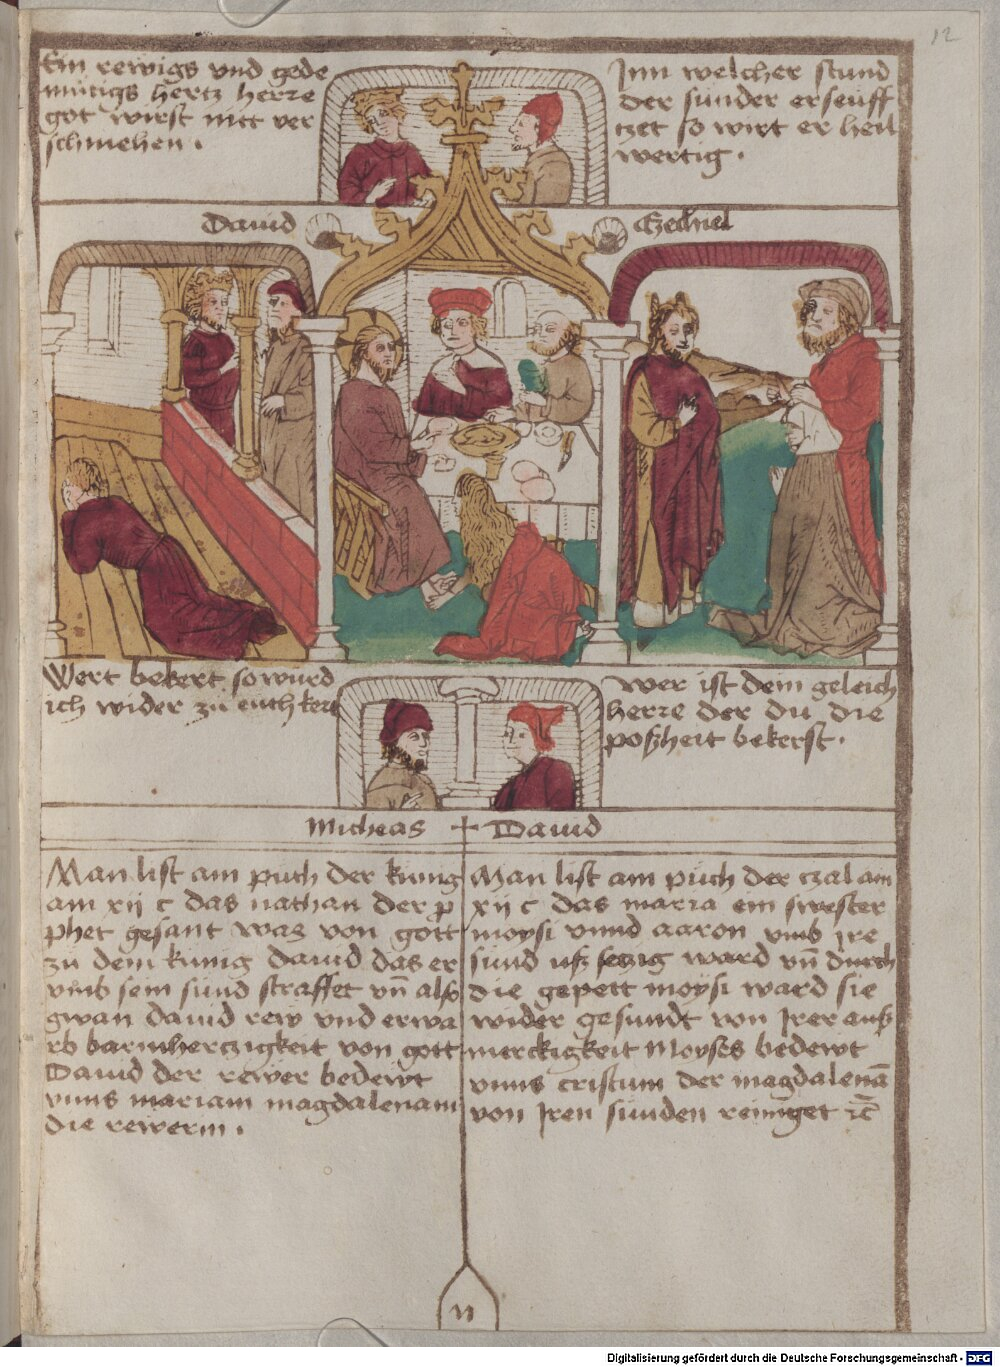 12
Ein rewigs vnd gede
mutigs hertz herre
got wirst nitt ver
schmehen .
Inn welcher stund
der sunder erseuff
tzet so wirt er heil
wertig .
Dauid
Ezechiel
Wert bekert so wurd
ich wider zu euch kert
Wer ist dem geleich
herre der du die
poßheit bekerst .
Micheas + Dauid
Man list am puch der kunig
am xij c das nathan der p̄
phet gesant was von gott
zu dem kunig dauid das er
vmb sein sund straffet vn̄ also
gwan dauid rew vnd erwa
rb barmhertzigkeit von gott
Dauid der rewer bedewt
vnns mariam magdalenam
die rewerin .
Man list am puch der tzal am
xij c das maria ein swester
moysi vnnd aaron vmb ire
sund ussetzig ward vn̄ durch
die gepett moysi ward sie
wider gesundt von Irer auß
merckigkeit Moyses bedewt
vnns cristum der magdalenā
von Iren sunden reiniget ⁊c̄
11
Digitalisierung gefördert durch die Deutsche Forschungsgemeinschaft - DFG